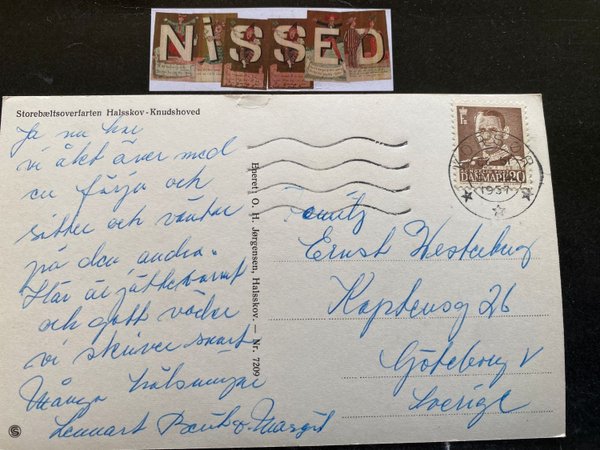 NiSSED
Storebæltsoverfarten Halsskov - Knudshoved
Ja nu har
vi åkt över med
en färja och
sitter och väntar
på den andra.
Här är jättevarmt
och gott väder
vi skriver snart
Många hälsningar
Lennart Berit o. Margit
Eneret: O. H. Jørgensen, Halsskov. — Nr. 7209
KORSØR
1957
DANMARK 20
Ernst Westerberg
Kaptensg 26
Göteborg V
Sverige